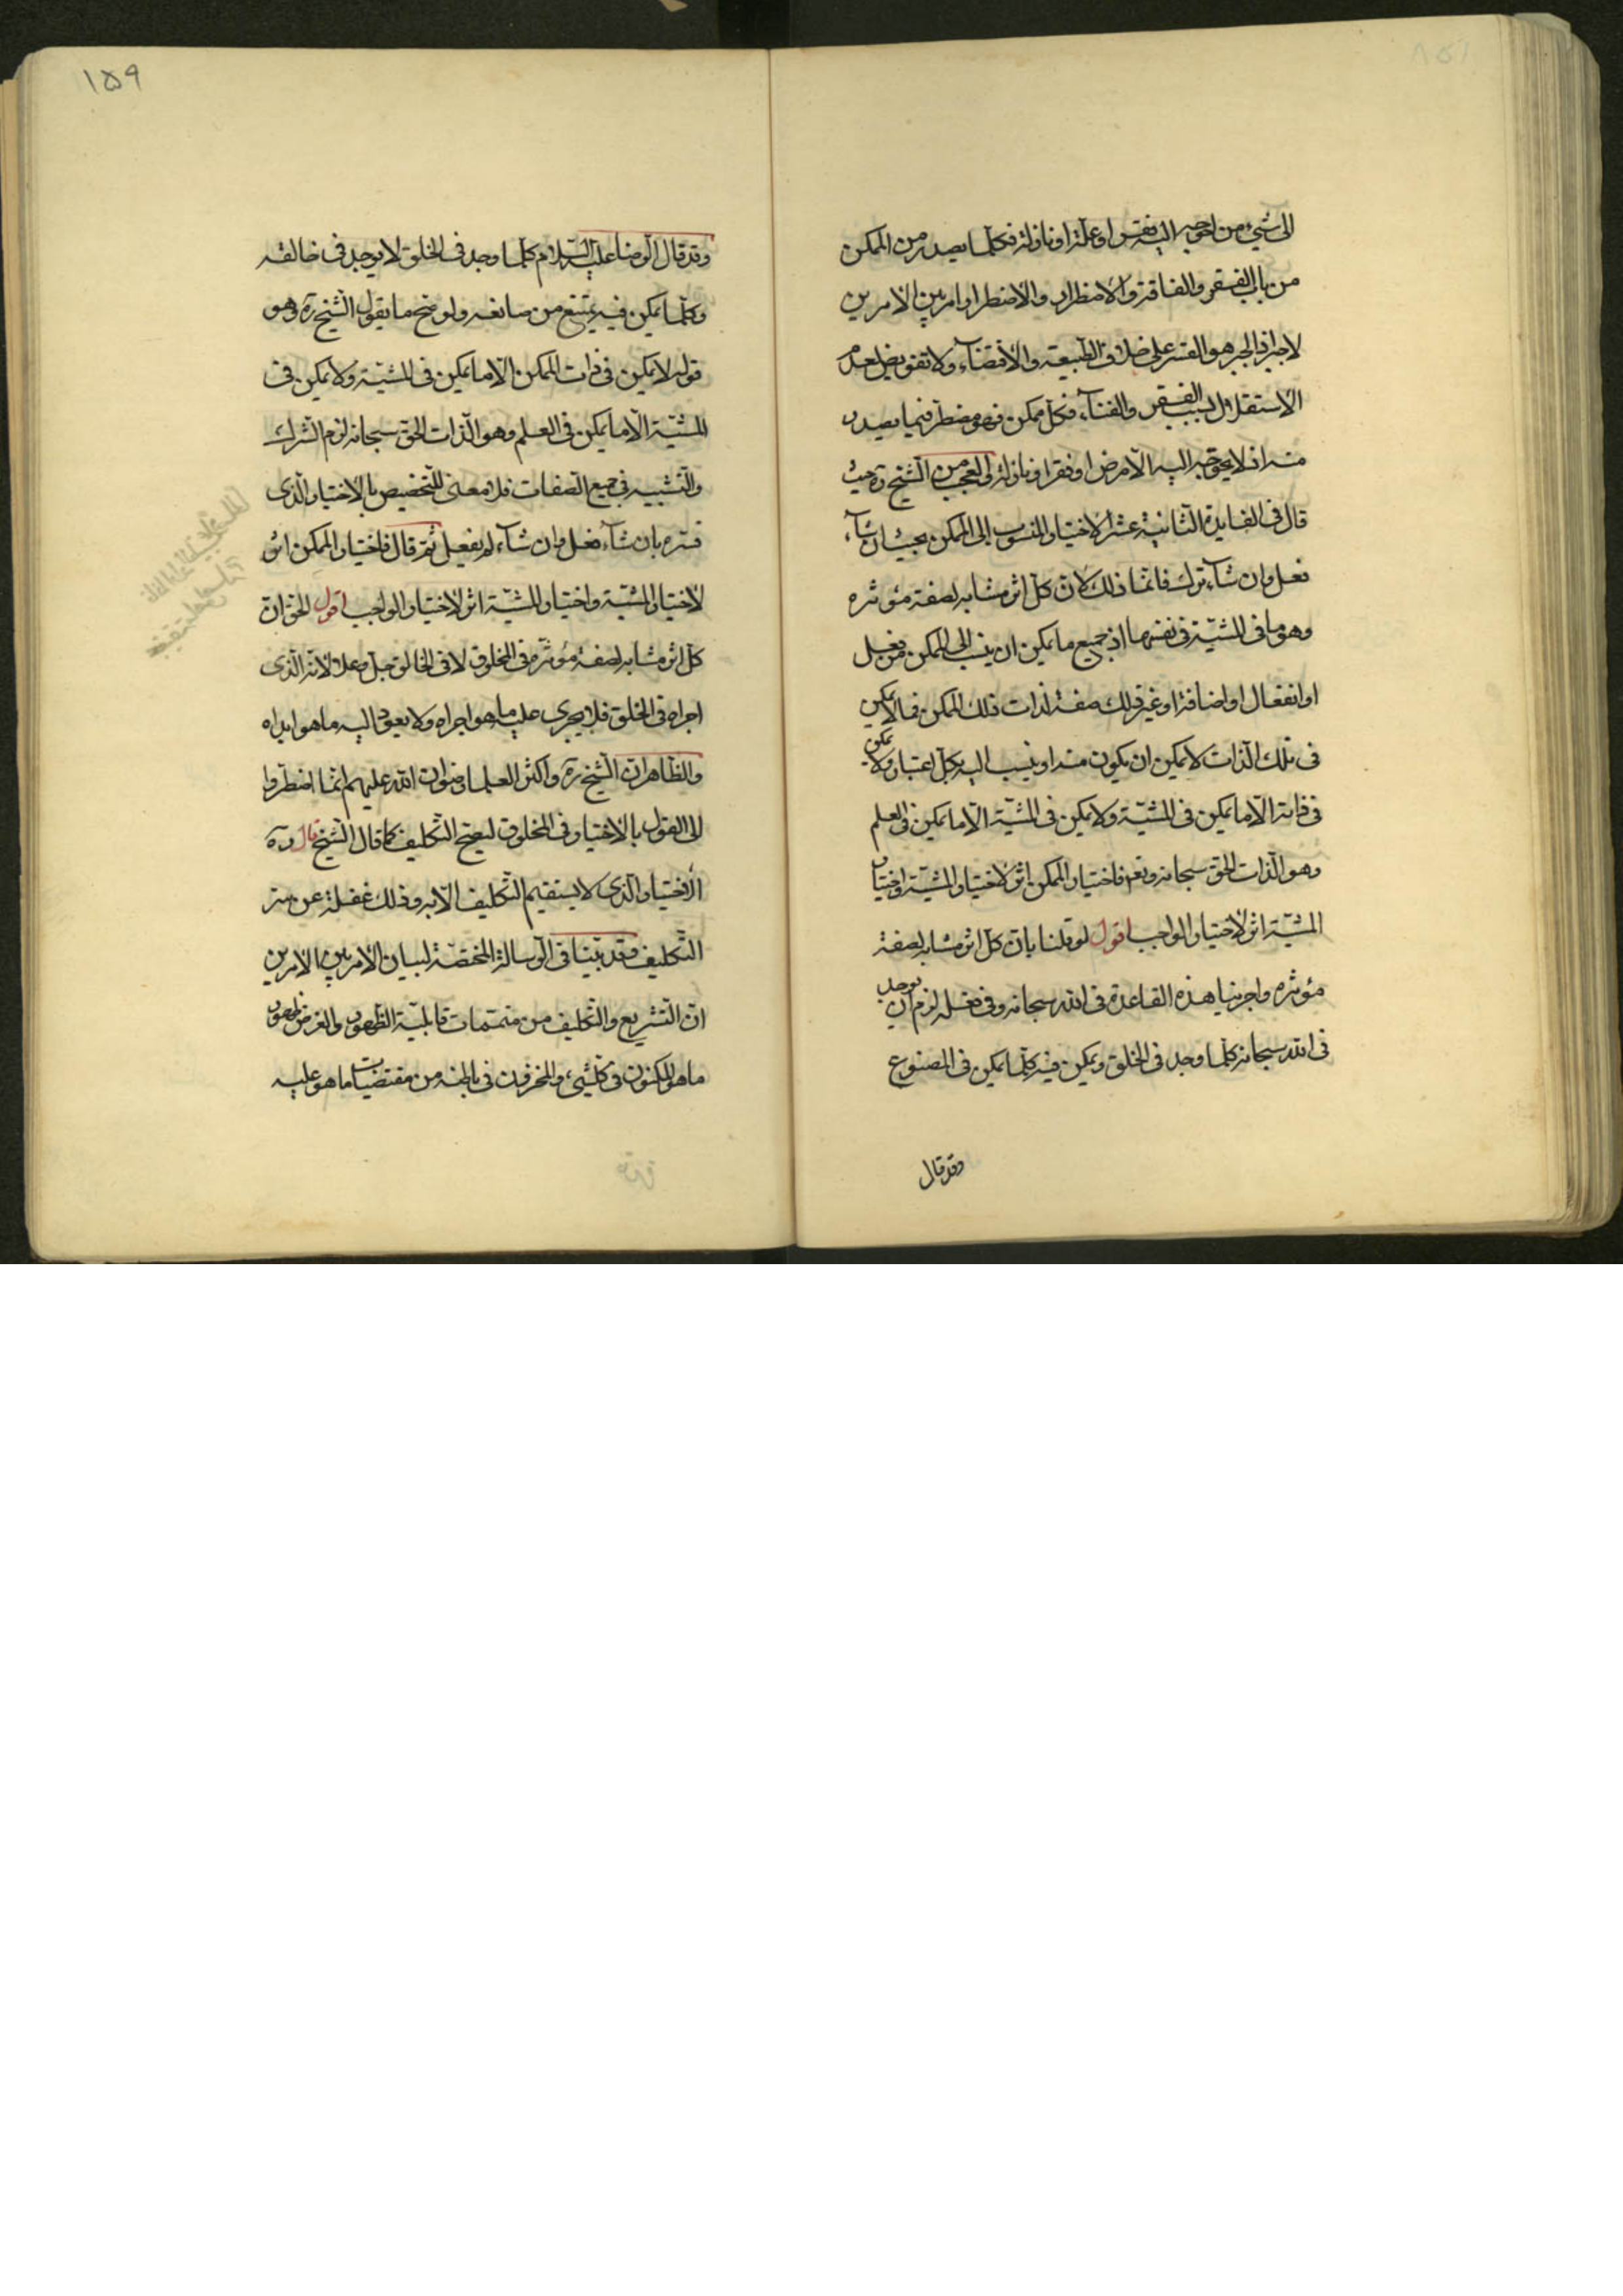 الى شيء من احوجه اليه بفقر او علة او نازلة فكلما يصدر من الممكن
من باب الفقر والفاقة والاضطرار والاضطرار امر بين الامرين
لا جبر اذ الجبر هو القسر على خلاف الطبيعة والاقتضاء ولا تفويض لعدم
الاستقلال بسبب الفقر والفناء فكل ممكن فهو مضطر فيما يصدر
منه اذ لا يحوجه اليه الا مرض او فقر او نازلة والعجب من الشيخ ره حيث
قال في الفايدة الثانية عشر الاختيار المنسوب الى الممكن بحيث ان شاء
فعل وان شاء ترك فانما ذلك لان كل اثر مشابه لصفة مؤثره
وهو ما في المشية في نفسها اذ جميع ما يمكن ان ينسب الى الممكن من فعل
او انفعال او اضافة او غير ذلك صفة لذات ذلك الممكن فما لا يمكن
في تلك الذات لا يمكن ان يكون منه او ينسب اليه بكل اعتبار ولا يمكن
في ذاته الا ما يمكن في المشية ولا يمكن في المشية الا ما يمكن في العلم
وهو الذات الحق سبحانه وتع فاختيار الممكن اثر لاختيار المشية واختيار
المشية اثر لاختيار الواجب اقول لو قلنا بان كل اثر مشابه لصفة
مؤثره واجرينا هذه القاعدة في الله سبحانه وفي فعله لزم ان يوجد
في الله سبحانه كلما وجد في الخلق ويمكن فيه كلما يمكن في المصنوع
وقد قال
١٥٩
وقد قال الرضا عليه السلام كلما وجد في الخلق لا يوجد في خالقه
وكلما يمكن فيه يمتنع من صانعه ولو صح ما يقول الشيخ ره وهو
قوله لا يمكن في ذات الممكن الا ما يمكن في المشية ولا يمكن في
المشية الا ما يمكن في العلم وهو الذات الحق سبحانه لزم الشرك
والتشبيه في جميع الصفات فلا معنى للتخصيص بالاختيار الذي
فسره بان شاء فعل وان شاء لم يفعل ثم قال فاختيار الممكن اثر
لاختيار المشية واختيار المشية اثر لاختيار الواجب اقول الحق ان
كل اثر مشابه لصفة مؤثره في المخلوق لا في الخالق جل وعلا لانه الذي
اجراه في الخلق فلا يجري عليه ما هو اجراه ولا يعود اليه ما هو ابداه
والظاهر ان الشيخ ره واكثر العلما رضوان الله عليهم انما اضطروا
الى القول بالاختيار في المخلوق ليصح التكليف كما قال الشيخ قال ره
الاختيار الذي لا يستقيم التكليف الا به وذلك غفلة عن سر
التكليف وقد بينا في الرسالة المختصة لبيان الامر بين الامرين
ان التشريع والتكليف من متممات قابلية الظهور والغرض ظهور
ما هو المكنون في كلشيء والمخزون في باطنه من مقتضيات ما هو عليه